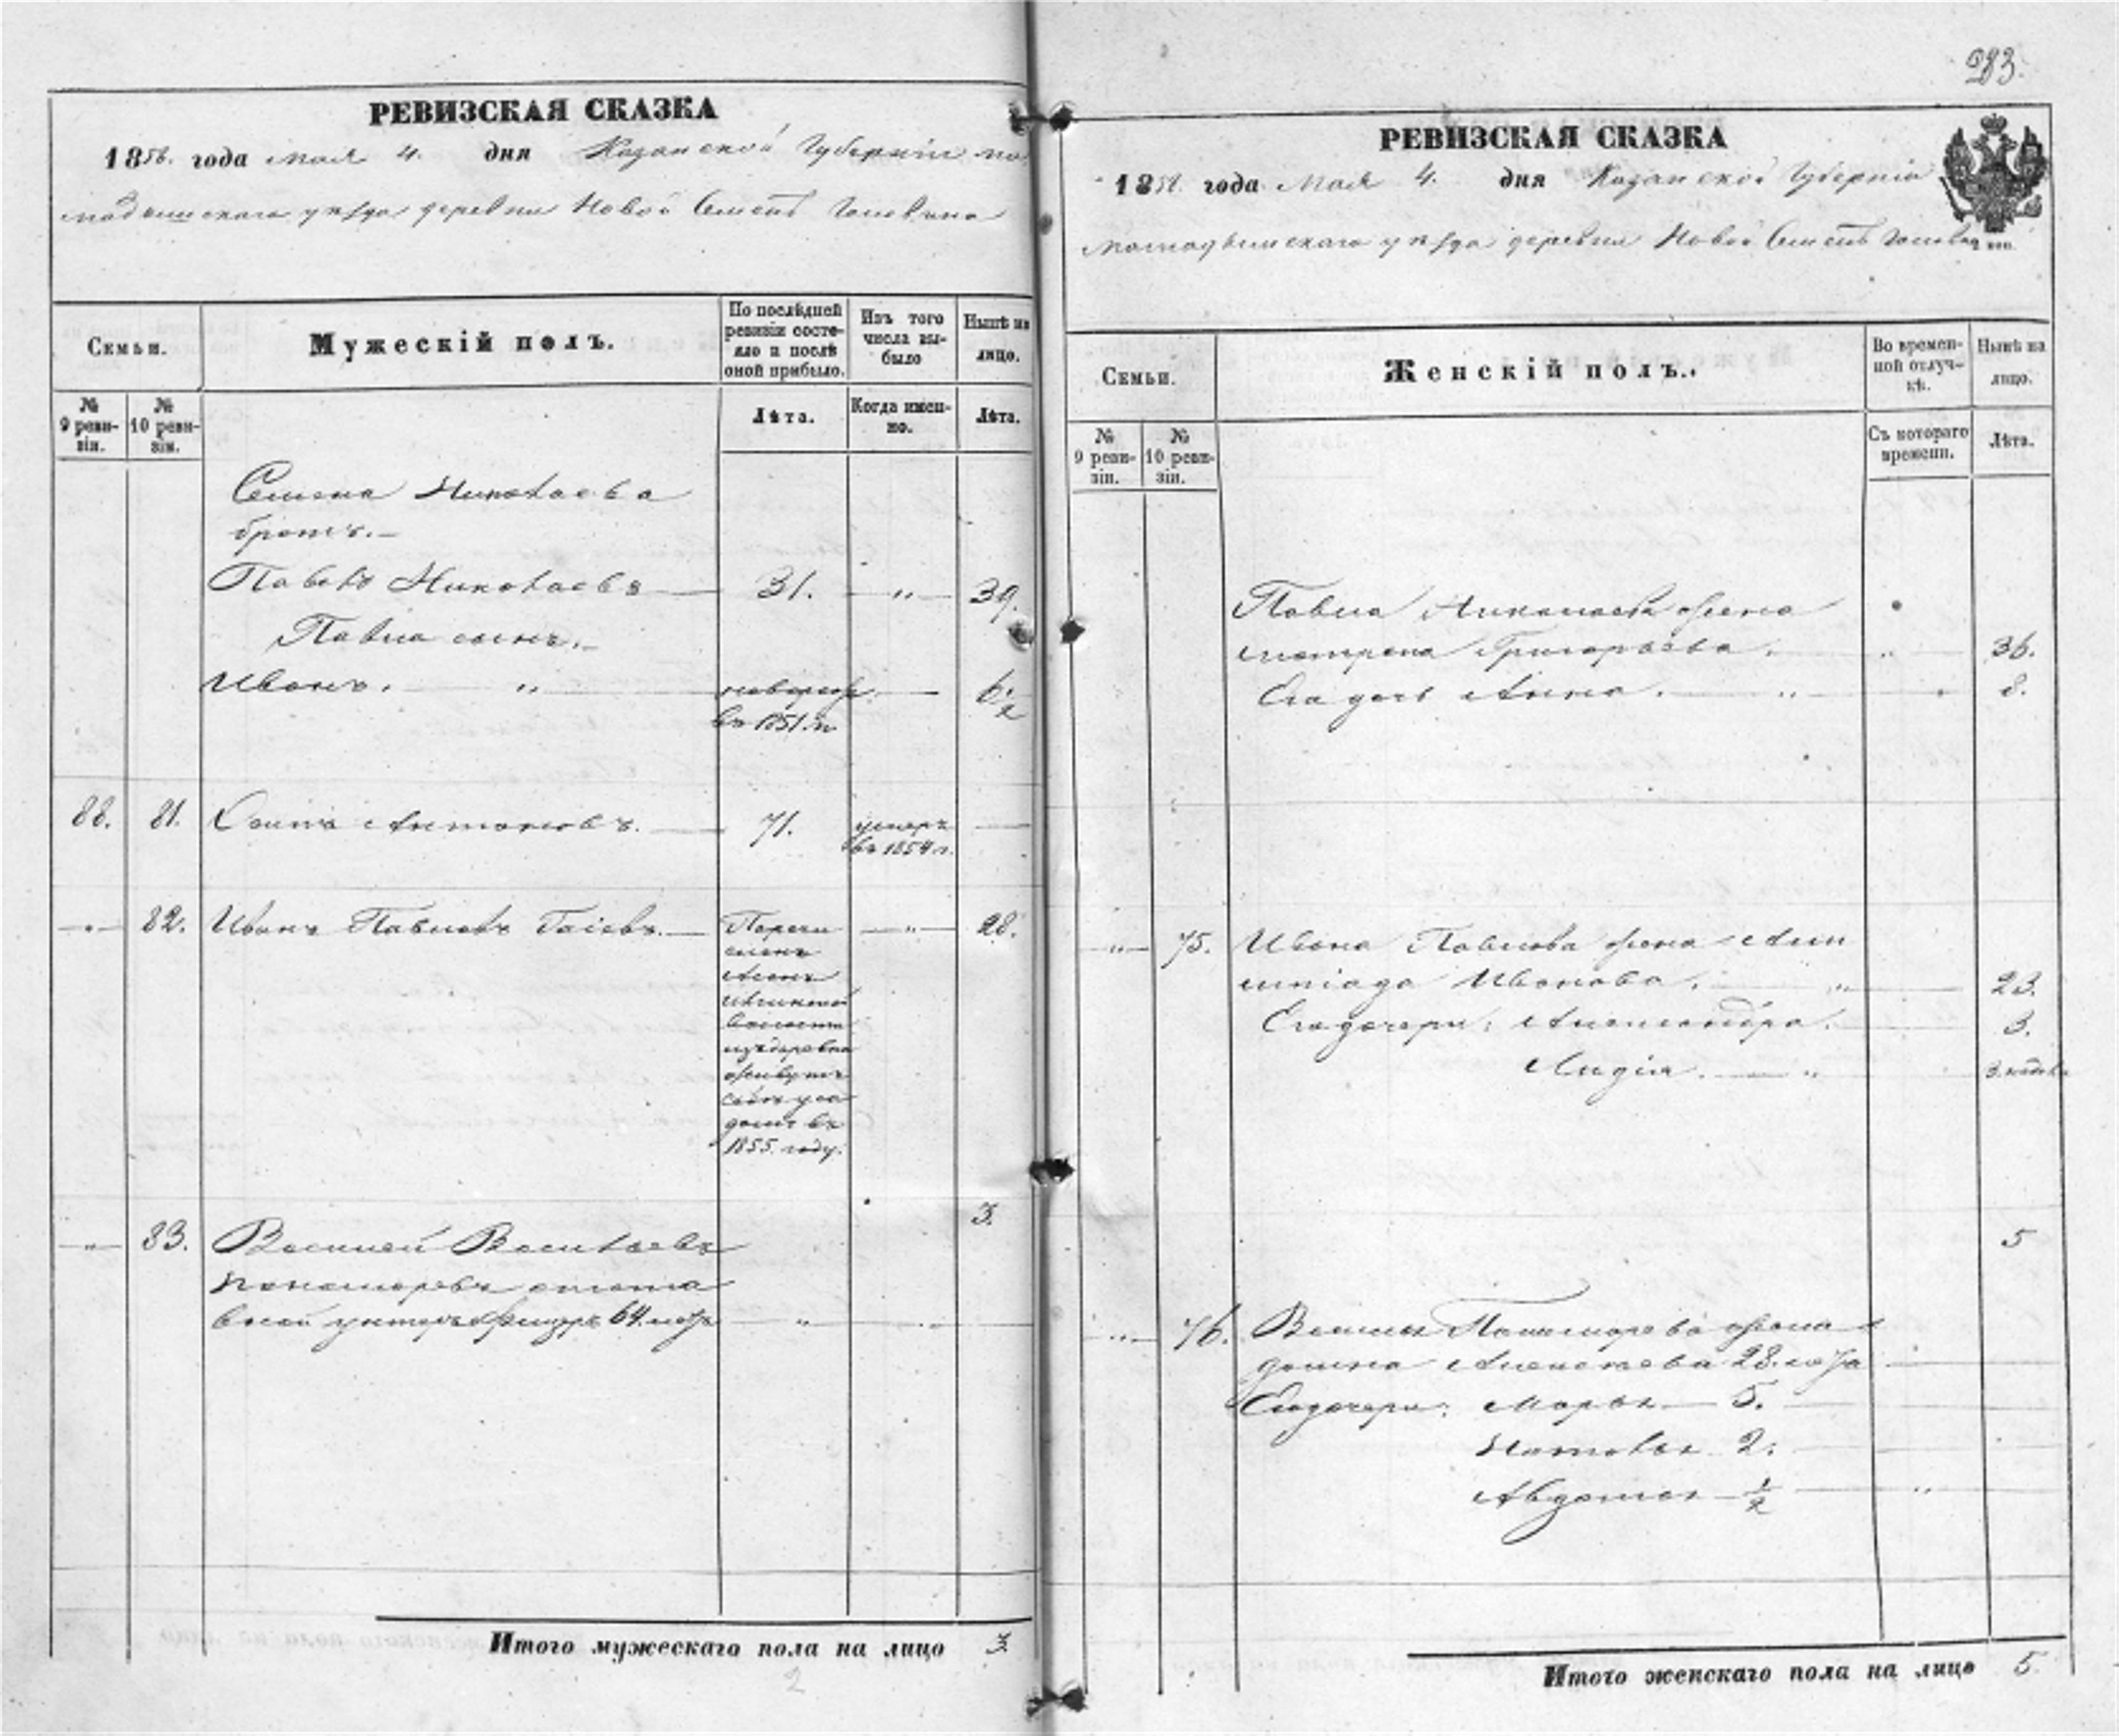 283.
РЕВИЗСКАЯ СКАЗКА
1858. года мая 4. дня Казанской Губерніи
уѣзда деревни Новой
Семьи.
Мужескій полъ.
По послѣдней ревизіи состояло и послѣ оной прибыло.
Изъ того числа выбыло
Нынѣ на лицо.
№ 9 ревизіи.
№ 10 ревизіи.
Лѣта.
Когда именно.
Лѣта.
Семена Николаева
братъ.
Павелъ Николаевъ 31. " 39.
Павла сынъ.
Иванъ. " новорожд. 6 1/2
въ 1851. г.
88. 81. Осипъ Антоновъ. 71. умеръ
въ 1854 г.
" 82. Иванъ Павловъ Перечи " 28.
сленъ
волости
изъ деревни
въ
1855. году.
3.
" 83. Василей Васильевъ
Пономаревъ отста
вной унтеръ офицеръ 64. лѣтъ "
Итого мужескаго пола на лицо 3
2
РЕВИЗСКАЯ СКАЗКА
1858. года Мая 4. дня Казанской Губерніи
уѣзда деревни Новой
Семьи.
Женскій полъ.
Во временной отлучкѣ.
Нынѣ на лицо.
№ 9 ревизіи.
№ 10 ревизіи.
Съ котораго времени.
Лѣта.
Павла Николаева жена
Матрена Григорьева. " 36.
Его дочь Анна. " 8.
" 75. Ивана Павлова жена Алим
пiада Иванова. " 23.
Его дочери: Александра. 3.
Лидія. " 3. недѣли
5
" 76. Василья Пономарева жена
Алексеева 28. лѣтъ
Его дочери: Марья 5.
Наталья 2.
Авдотья 1/2 "
Итого женскаго пола на лицо 5.